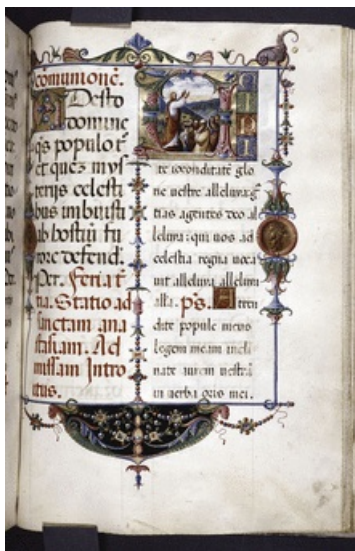 comunionē.
ADesto
domine
q̄s populo t̄
et quez mys
terijs celesti
bus imbuisti
ab hostiū fu
rore defend.
Per. Feria t̄
tia. Statio ad
sanctam ana
stasiam. Ad
missam Intro
itus.
te iocunditatē glo
rie vestre alleluya g̃
tias agentes deo al
leluya: qui vos ad
celestia regna voca
uit alleluya alleluia
alla. ps. Atten
dite popule meus
legem meam incli
nate aurem vestrā
in verba oris mei.